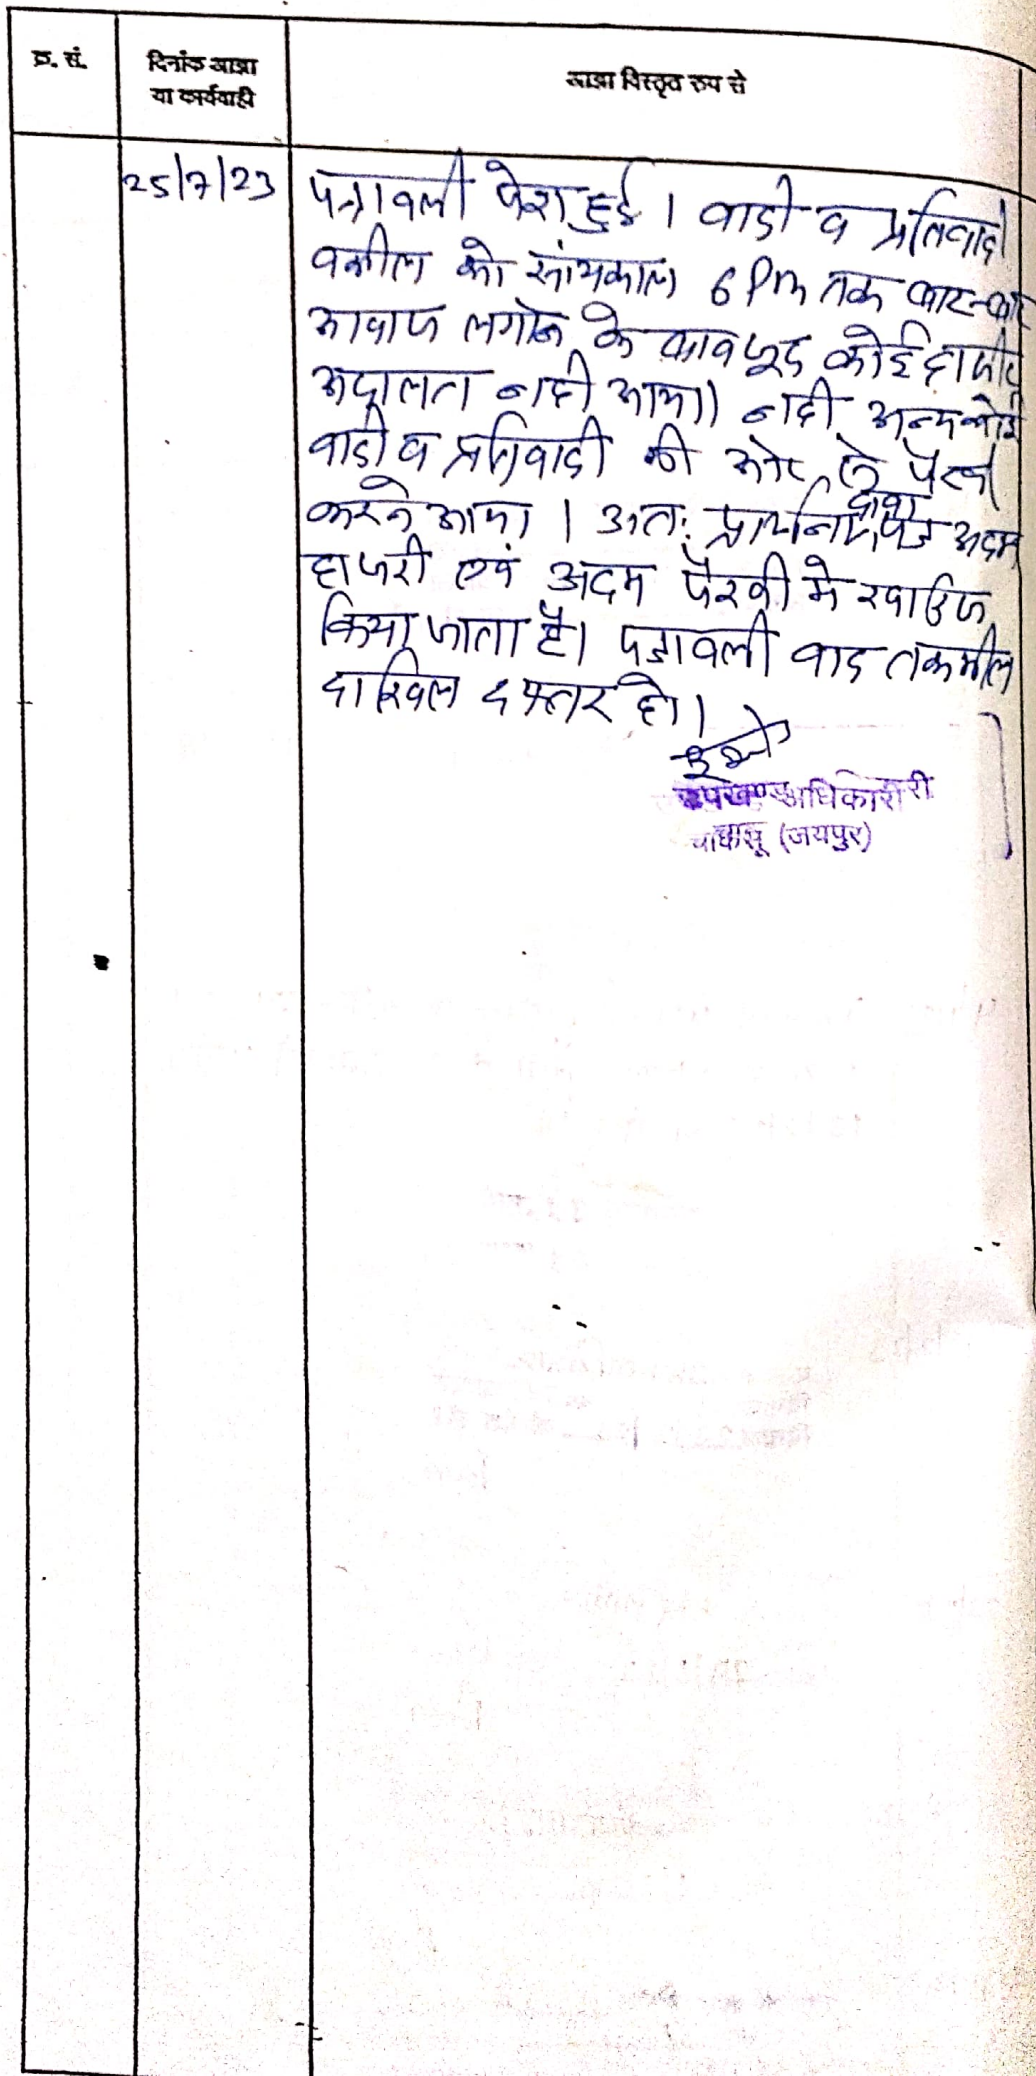 क्र. सं.
दिनांक आज्ञा
या कार्यवाही
आज्ञा विस्तृत रुप से
25/7/23
पत्रावली पेश हुई। वादी व प्रतिवादी
वकील को सांयकाल 6 Pm तक बार-बार
आवाज लगाने के बावजूद कोई हाजीर
अदालत नही आया। नाही अन्य कोई
वादी व प्रतिवादी की ओर से पैरवी
करने आया। अतः प्रार्थना पत्र दावा अदम
हाजरी एवं अदम पैरवी मे खारिज
किया जाता है। पत्रावली बाद तकमील
दाखिल दफ्तर हो।
उपखण्ड अधिकारी
चाकसू (जयपुर)